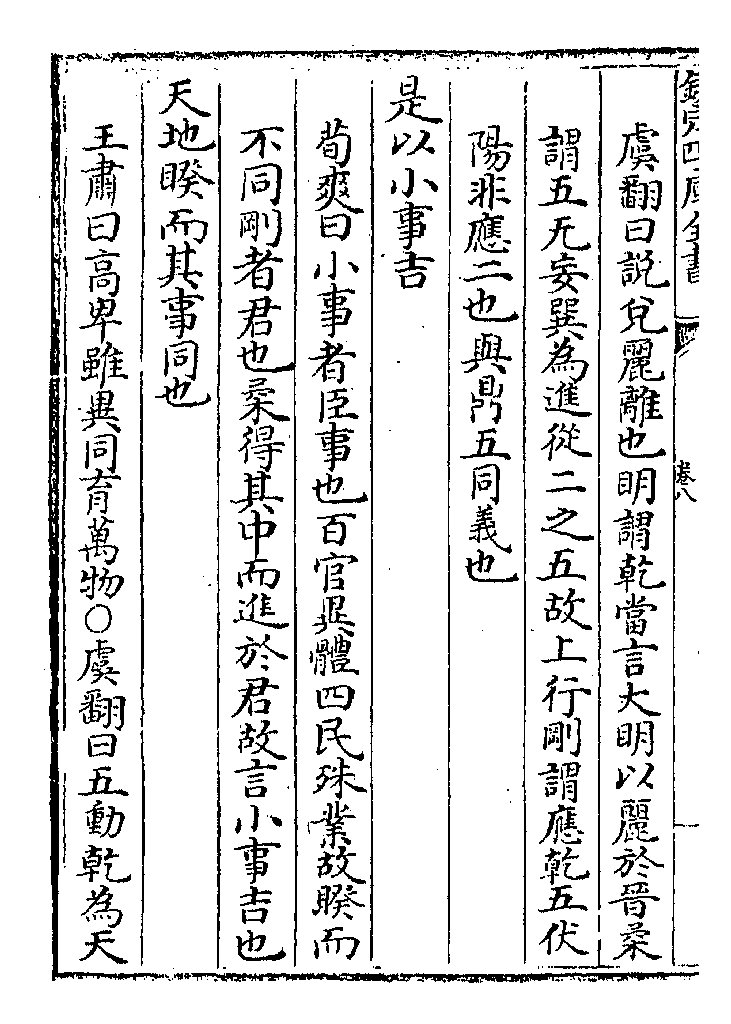 欽定四庫全書
卷八
虞翻曰説兌麗離也明謂乾當言大明以麗於晉柔
謂五无妄巽為進從二之五故上行剛謂應乾五伏
陽非應二也與鼎五同義也
是以小事吉
荀爽曰小事者臣事也百官異體四民殊業故睽而
不同剛者君也柔得其中而進於君故言小事吉也
天地睽而其事同也
王肅曰高卑雖異同育萬物○虞翻曰五動乾為天